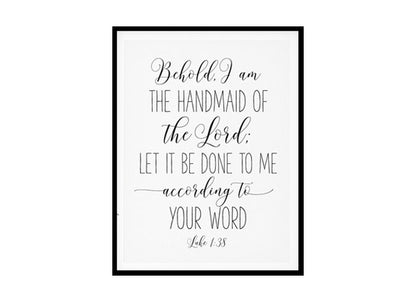 Behold, I am
THE HANDMAID OF
the Lord;
LET IT BE DONE TO ME
according to
YOUR WORD
Luke 1:38